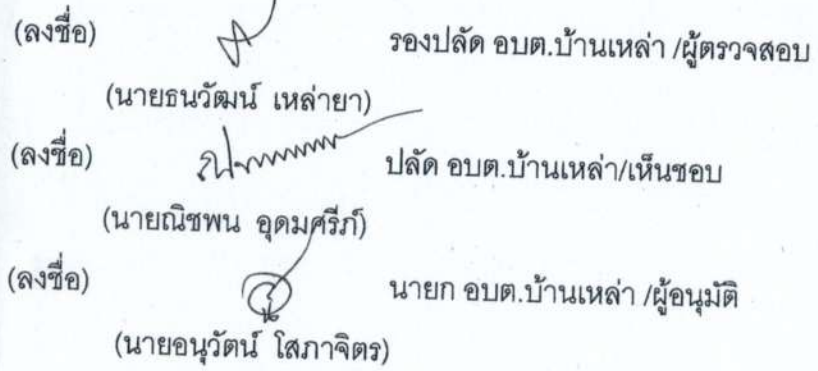 (ลงชื่อ) รองปลัด อบต.บ้านเหล่า /ผู้ตรวจสอบ
(นายธนวัฒน์ เหล่ายา)
(ลงชื่อ) ปลัด อบต.บ้านเหล่า/เห็นชอบ
(นายณิชพน อุดมศรีภ์)
(ลงชื่อ) นายก อบต.บ้านเหล่า /ผู้อนุมัติ
(นายอนุวัตน์ โสภาจิตร)